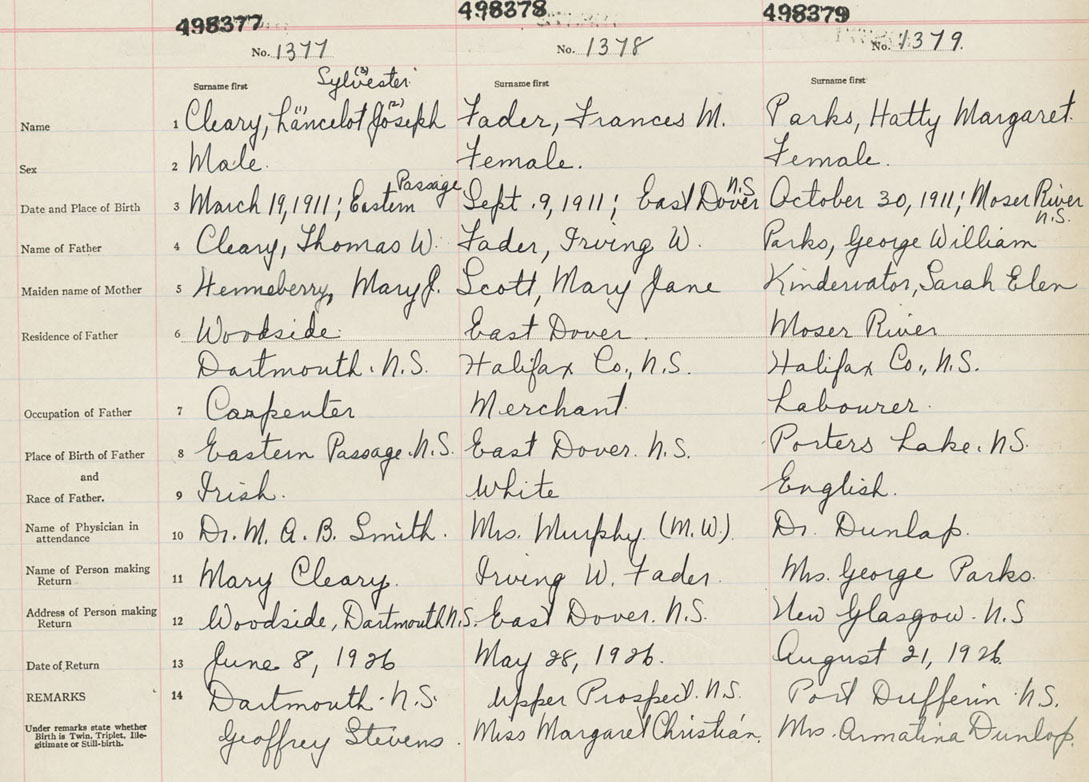 498377 498378 498379
No. 1377 No. 1378 No. 1379.
Surname first Surname first Surname first
Sylvester (3)
Name 1 Cleary, Lancelot (1) Joseph (2) Fader, Frances M. Parks, Hatty Margaret.
Sex 2 Male. Female. Female.
Date and Place of Birth 3 March 19, 1911; Eastern Passage Sept. 9, 1911; East Dover N.S. October 30, 1911; Moser River N.S.
Name of Father 4 Cleary, Thomas W. Fader, Irving W. Parks, George William
Maiden name of Mother 5 Henneberry, Mary J. Scott, Mary Jane Kindervator, Sarah Elen
Residence of Father 6 Woodside. East Dover. Moser River
Dartmouth. N.S. Halifax Co., N.S. Halifax Co., N.S.
Occupation of Father 7 Carpenter Merchant. Labourer.
Place of Birth of Father 8 Eastern Passage. N.S. East Dover. N.S. Porters Lake. N.S.
and
Race of Father. 9 Irish. White English.
Name of Physician in attendance 10 Dr. M. A. B. Smith. Mrs. Murphy (M.W.) Dr. Dunlap.
Name of Person making Return 11 Mary Cleary. Irving W. Fader. Mrs. George Parks.
Address of Person making Return 12 Woodside, Dartmouth N.S. East Dover. N.S. New Glasgow. N.S
Date of Return 13 June 8, 1926 May 28, 1926. August 21, 1926.
REMARKS 14 Dartmouth. N.S. Upper Prospect. N.S. Port Dufferin N.S.
Under remarks state whether Birth is Twin, Triplet, Ille-gitimate or Still-birth. Geoffrey Stevens. Miss Margaret Christian. Mrs. Armatina Dunlop.